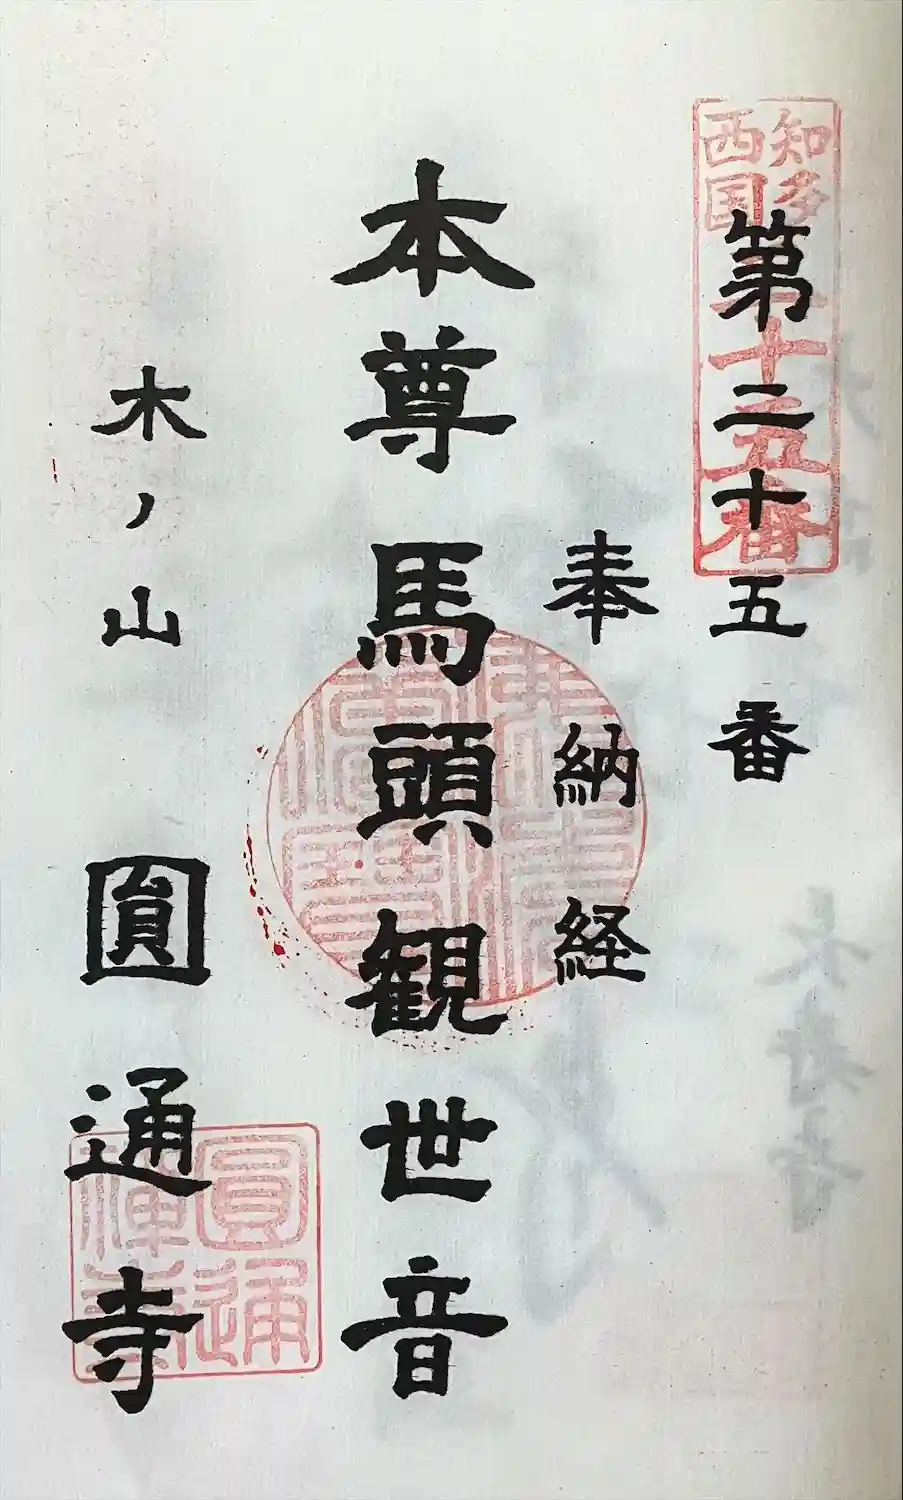 知多
西国
二十五番
第二十五番
奉納経
本尊馬頭観世音
木ノ山 圓通寺
圓通
禅寺